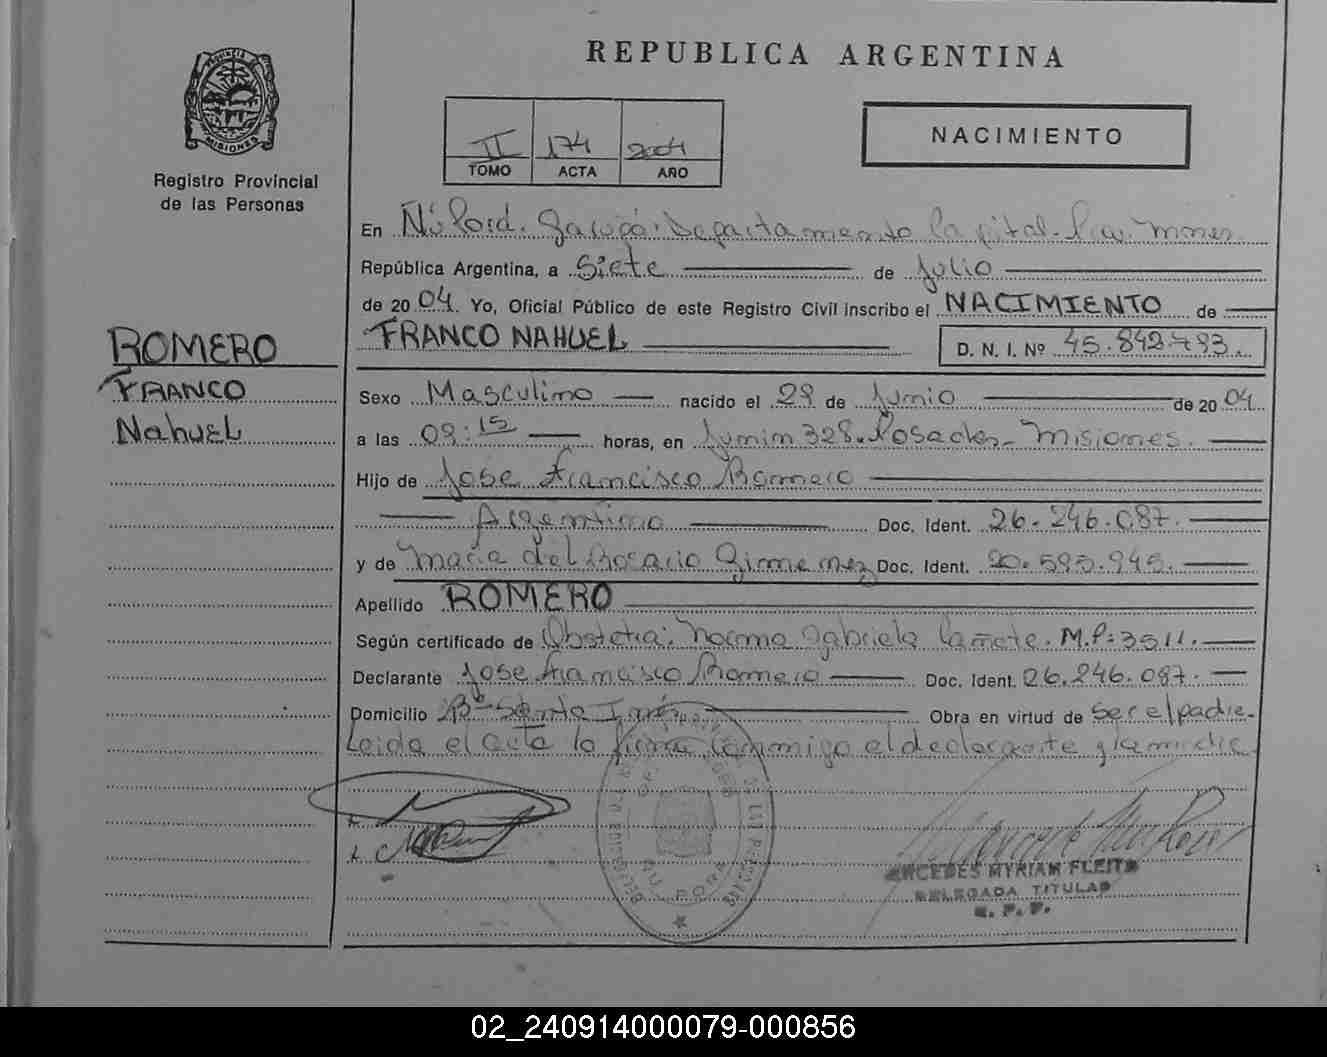 REPUBLICA ARGENTINA
PROVINCIA DE
MISIONES
Registro Provincial
de las Personas
II 174 2004
TOMO ACTA AÑO
NACIMIENTO
En Ñú Porá. Garupá. Departamento Capital. Mnes.
República Argentina, a Siete de Julio
de 2004. Yo, Oficial Público de este Registro Civil inscribo el NACIMIENTO de
FRANCO NAHUEL
D. N. I. Nº 45.842.793.
ROMERO
FRANCO
NahuEL
Sexo Masculino nacido el 29 de Junio de 2004
a las 09:15 horas, en Junin 328. Posadas - Misiones.
Hijo de Jose Francisco Romero
Argentino Doc. Ident. 26.246.087.
y de Maria del Rosario Gimenez Doc. Ident. 20.595.945.
Apellido ROMERO
Según certificado de Obstetra: Norma Gabriela M.P: 3511.
Declarante Jose Francisco Romero Doc. Ident. 26.246.087.
Domicilio Bº Santa Inés Obra en virtud de ser el padre.
Leida el acta la firma conmigo el declarante y la madre
ÑU PORA
MERCEDES MYRIAM FLEITA
DELEGADA TITULAR
R. P. P.
02_240914000079-000856